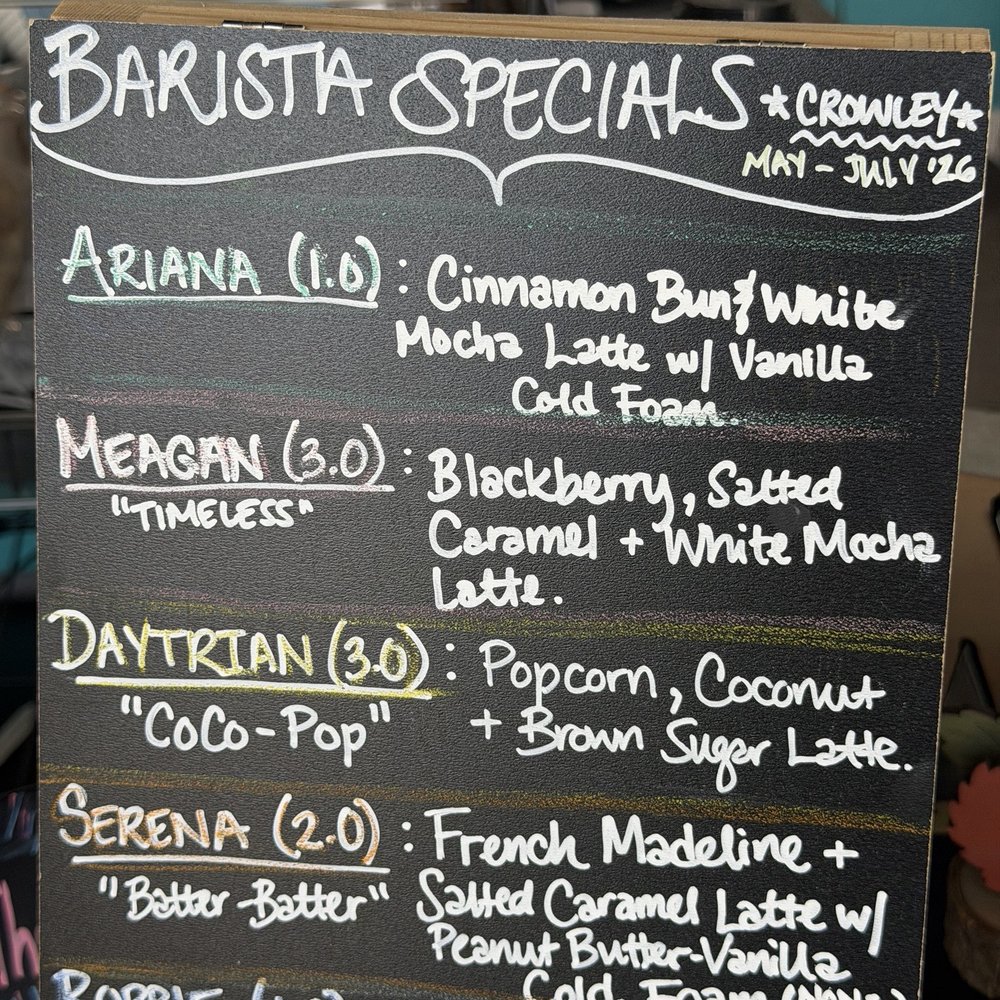 BARISTA SPECIALS *CROWLEY*
MAY - JULY '26
ARIANA (1.0) : Cinnamon Bun & White
Mocha Latte w/ Vanilla
Cold Foam.
MEAGAN (3.0) : Blackberry, Salted
"TIMELESS" Caramel + White Mocha
Latte.
DAYTRIAN (3.0) : Popcorn, Coconut
"CoCo-Pop" + Brown Sugar Latte.
SERENA (2.0) : French Madeline +
"Batter-Batter" Salted Caramel Latte w/
Peanut Butter-Vanilla
Cold Foam